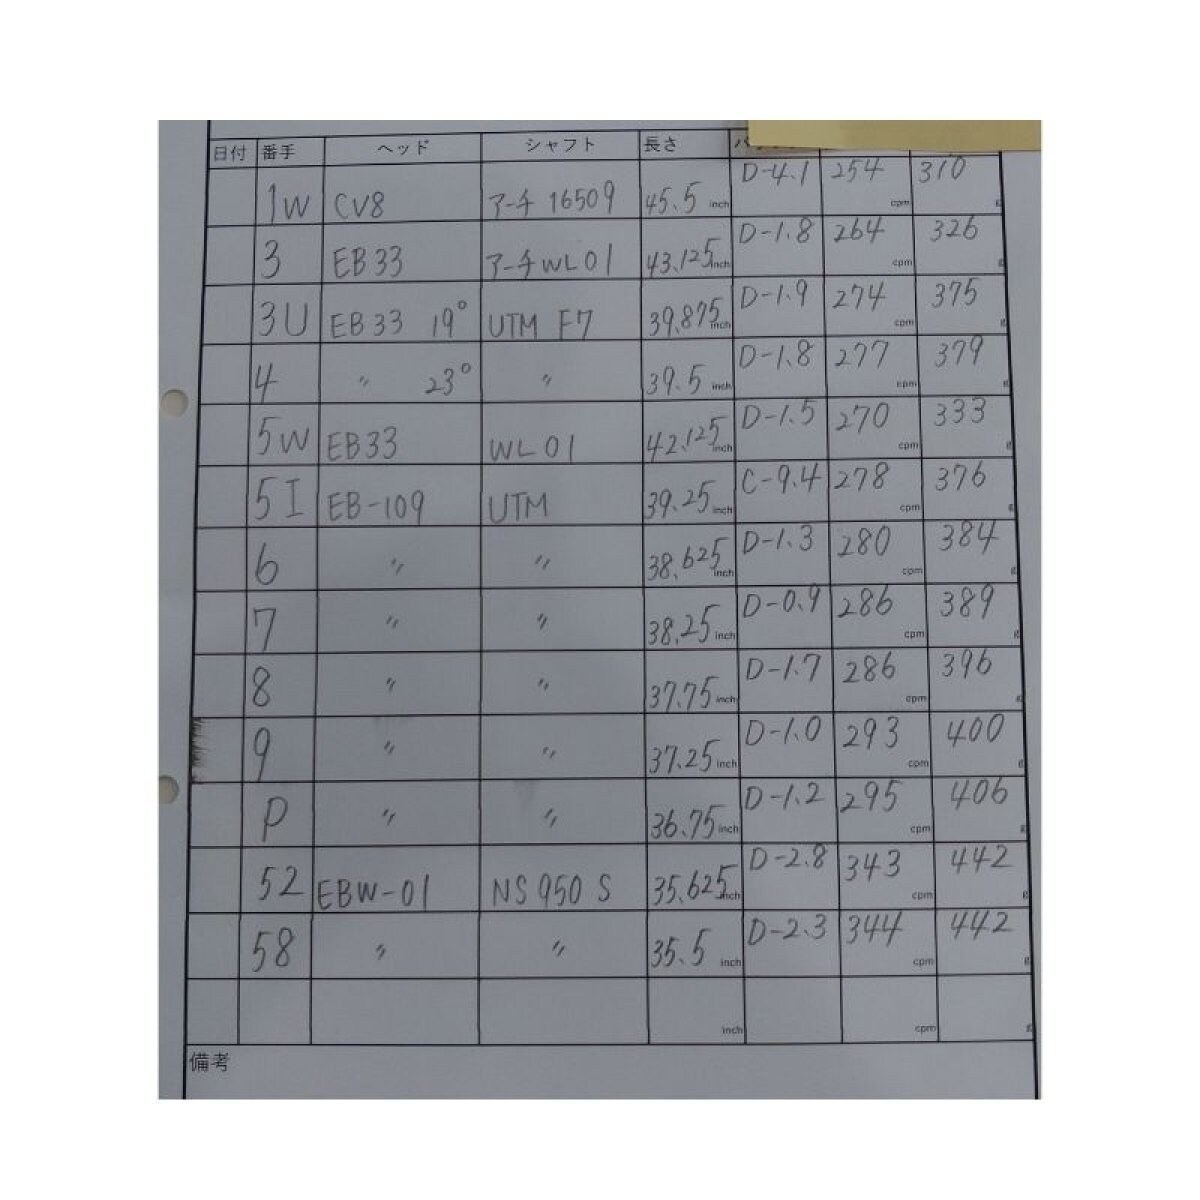 日付 番手 ヘッド シャフト 長さ バ
1W CV8 アーチ 16509 45.5 inch D-4.1 254 cpm 310 g
3 EB33 アーチWL01 43.125 inch D-1.8 264 cpm 326 g
3U EB33 19° UTM F7 39.875 inch D-1.9 274 cpm 375 g
4 〃 23° 〃 39.5 inch D-1.8 277 cpm 379 g
5W EB33 WL01 42.125 inch D-1.5 270 cpm 333
5I EB-109 UTM 39.25 inch C-9.4 278 cpm 376 g
6 〃 〃 38.625 inch D-1.3 280 cpm 384 g
7 〃 〃 38.25 inch D-0.9 286 cpm 389 g
8 〃 〃 37.75 inch D-1.7 286 cpm 396
9 〃 〃 37.25 inch D-1.0 293 cpm 400 g
P 〃 〃 36.75 inch D-1.2 295 cpm 406 g
52 EBW-01 NS950 S 35.625 inch D-2.8 343 cpm 442 g
58 〃 〃 35.5 inch D-2.3 344 cpm 442 g
inch cpm g
備考